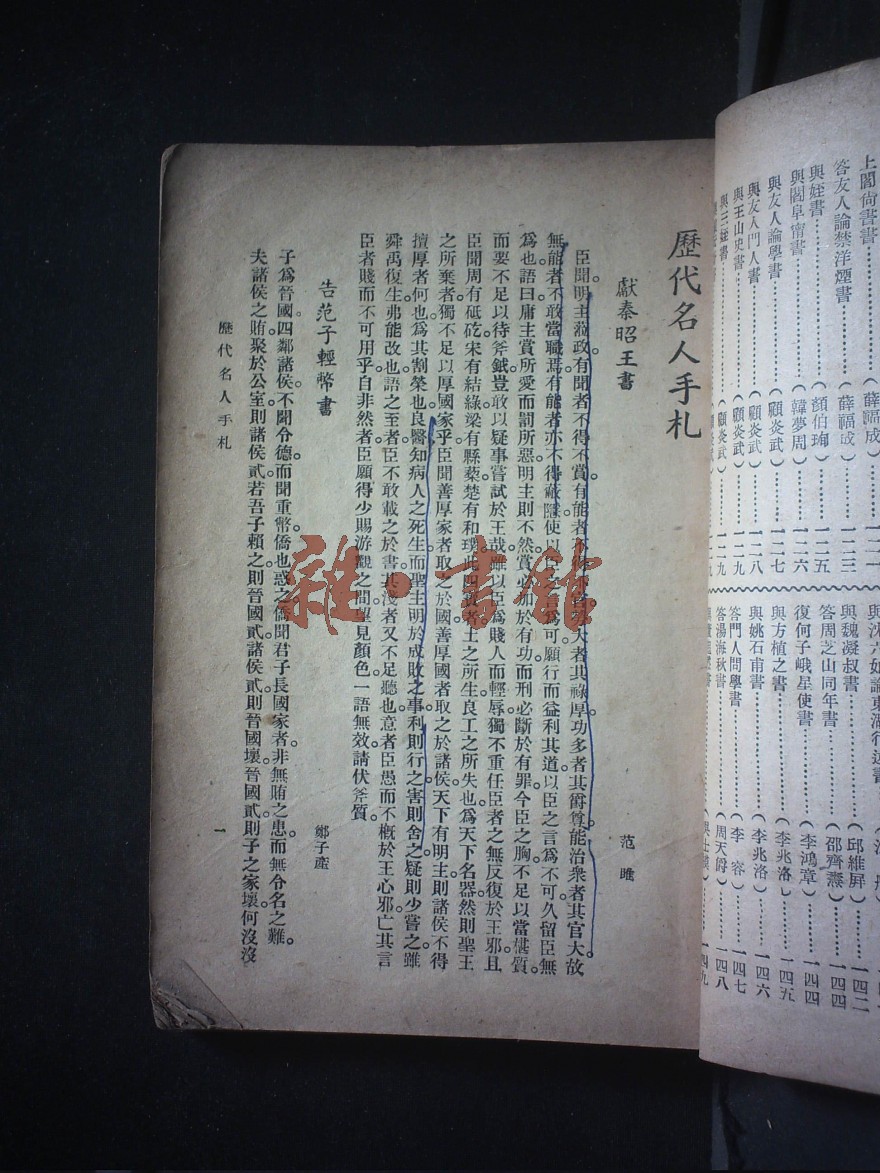 上閻尚書書………(薛福成)一二一
答友人論禁洋煙書………(薛福成)一二三
與姪書………(顏伯珣)一二五
與閻阜甯書………(韓夢周)一二六
與友人論學書………(顧炎武)一二七
與友人門人書………(顧炎武)一二八
與王山史書………(顧炎武)一二九
與三姪書………(顧炎武)一二九
與魏凝叔書………(邱維屏)一四二
答周芝山同年書………(邵齊燾)一四四
復何子峨星使書………(李鴻章)一四四
與方植之書………(李兆洛)一四五
與姚石甫書………(李兆洛)一四六
答門人問學書………(李容)一四七
答湯海秋書………(周天爵)一四八
一四九
歷代名人手札
獻秦昭王書 范雎
臣聞明主蒞政有聞者不得不賞有能者不得不官勞大者其祿厚功多者其爵尊能治衆者其官大故
無能者不敢當職焉有能者亦不得蔽隱使以臣之言為可願行而益利其道以臣之言爲不可久留臣無
爲也語曰庸主賞所愛而罰所惡明主則不然賞必加於有功而刑必斷於有罪今臣之胸不足以當椹質
而要不足以待斧鉞豈敢以疑事嘗試於王哉雖以臣為賤人而輕辱獨不重任臣者之無反復於王邪且
臣聞周有砥砨宋有結綠梁有縣藜楚有和璞此四寶者土之所生良工之所失也爲天下名器然則聖王
之所棄者獨不足以厚國家乎臣聞善厚家者取之於國善厚國者取之於諸侯天下有明主則諸侯不得
擅厚者何也爲其割榮也良醫知病人之死生而聖主明於成敗之事利則行之害則舍之疑則少嘗之雖
舜禹復生弗能改也語之至者臣不敢載之於書其淺者又不足聽也意者臣愚而不概於王心邪亡其言
臣者賤而不可用乎自非然者臣願得少賜游觀之間望見顏色一語無效請伏斧質
告范子輕幣書 鄭子產
子爲晉國四鄰諸侯不聞令德而聞重幣僑也惑之僑聞君子長國家者非無賄之患而無令名之難
夫諸侯之賄聚於公室則諸侯貳若吾子賴之則晉國貳諸侯貳則晉國壞晉國貳則子之家壞何沒沒
歷代名人手札 一
雜·書館